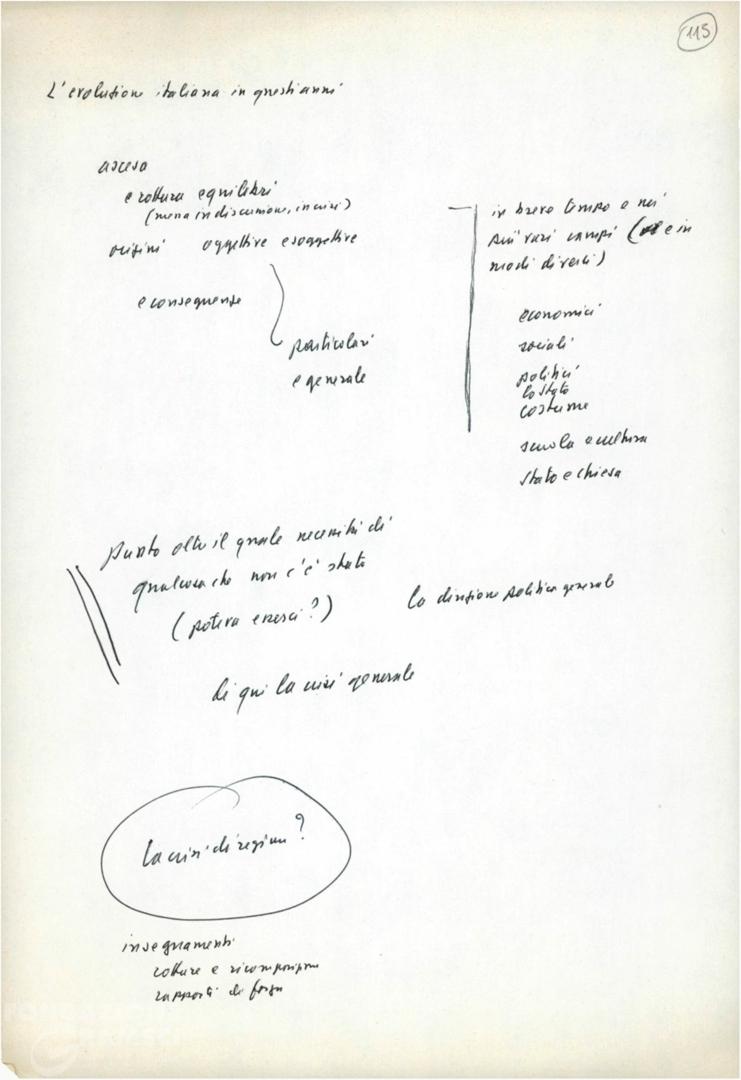 115
L'evoluzione italiana in questi anni
ascesa
e rottura equilibri
(messa in discussione, in crisi)
origini oggettive e soggettive
e conseguenze
particolari
e generale
in breve tempo e nei
più vari campi ( e in
modi diversi)
economici
sociali
politici
lo Stato
costume
scuola e cultura
Stato e chiesa
punto oltre il quale necessità di
qualcosa che non c'è stato
(poteva esserci?)
la direzione politica generale
di qui la crisi generale
la crisi di regime?
insegnamenti
rotture e ricomposizione
rapporti di forza
FONDAZIONE